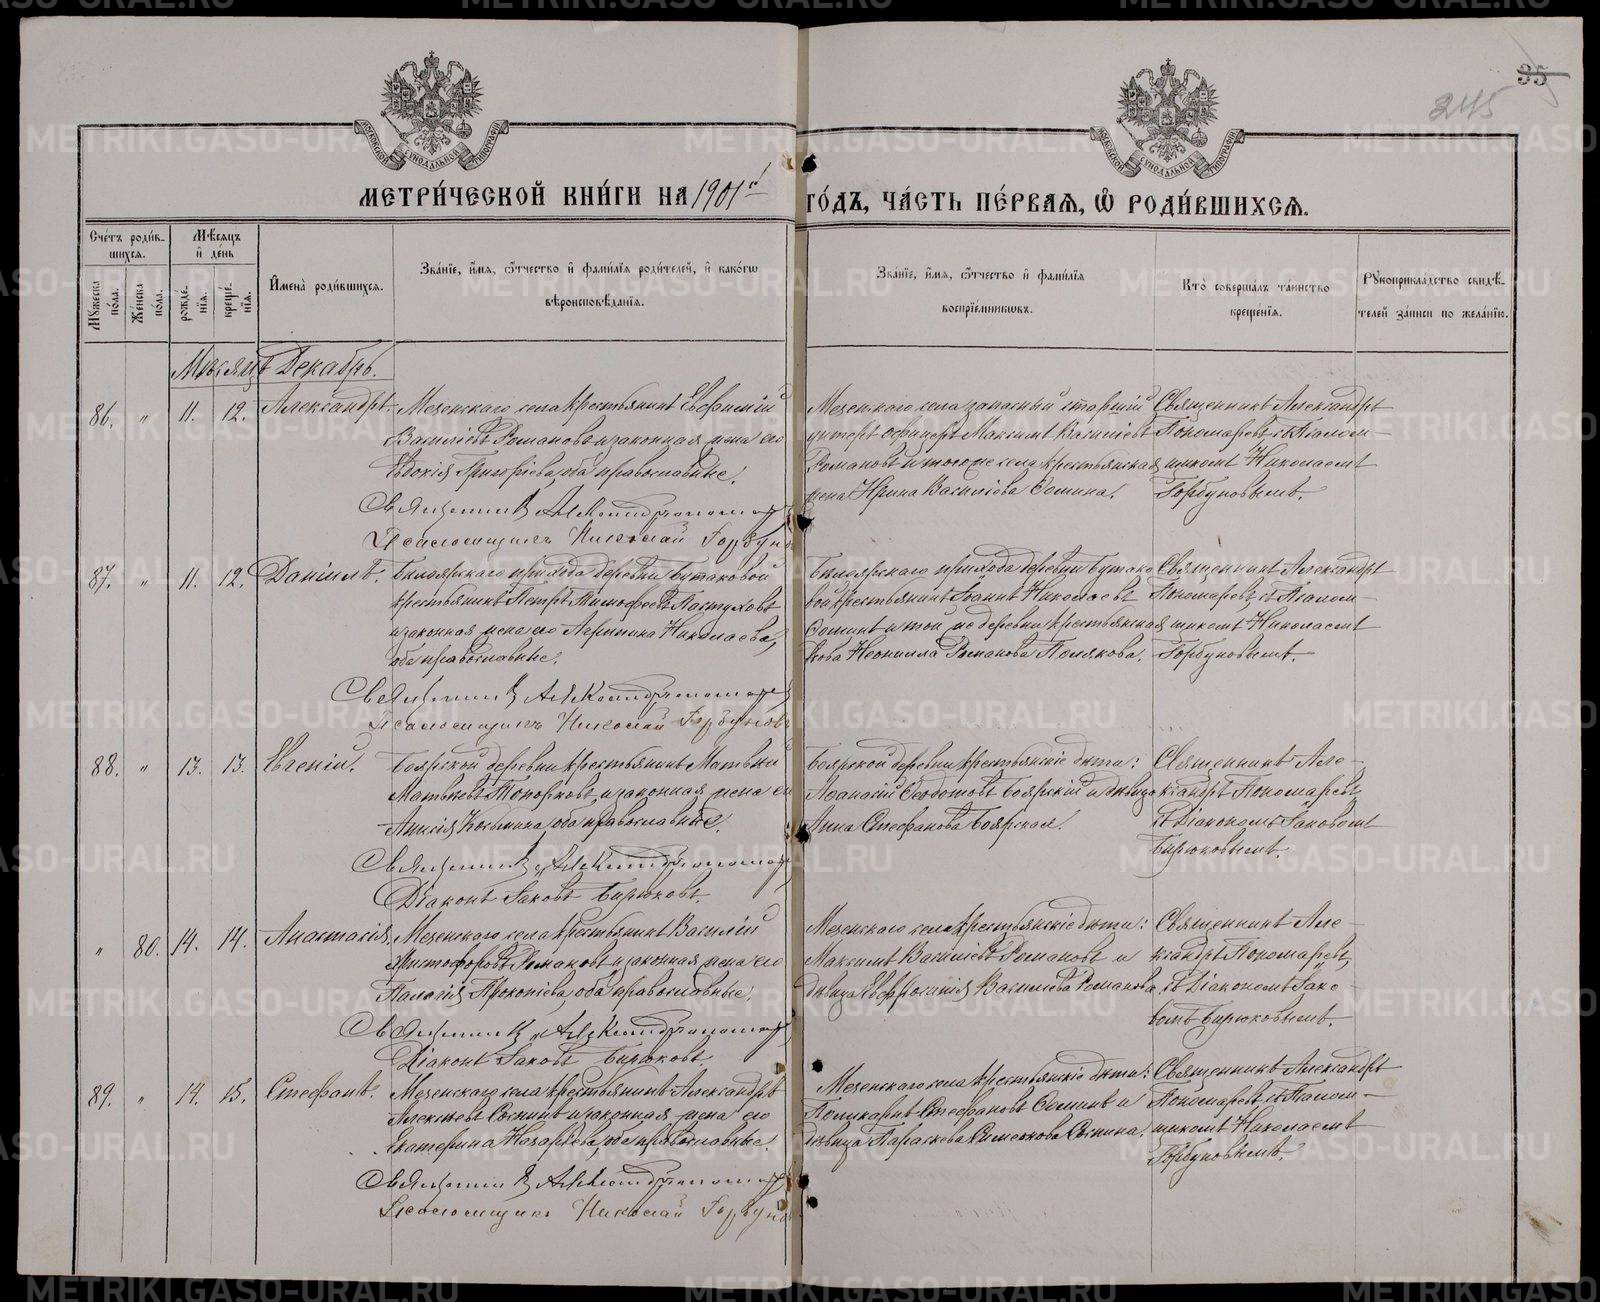 35
245
МОСКОВСКОЙ СѴНОДАЛЬНОЙ ТИПОГРАФІИ
МОСКОВСКОЙ СѴНОДАЛЬНОЙ ТИПОГРАФІИ
МЕТРИ́ЧЕСКОЙ КНИ́ГИ НА 1901й ГО́ДЪ, ЧА́СТЬ ПЕ́РВАѦ, Ѡ҆ РОДИ́ВШИХСѦ.
Сче́тъ роди́вшихсѧ.
Мꙋ́жеска по́ла.
Же́нска по́ла.
Мѣ́сѧцъ и҆ де́нь
рожде́нїѧ.
креще́нїѧ.
И҆мена̀ роди́вшихсѧ.
Зва́нїе, и҆́мѧ, ѻ҆́тчество и҆ фами́лїѧ роди́телей, и҆ како́гѡ
вѣроисповѣ́данїѧ.
Зва́нїе, и҆́мѧ, ѻ҆́тчество и҆ фами́лїѧ
воспрїе́мникѡвъ.
Кто̀ соверша́лъ та́инство
креще́нїѧ.
Рꙋкоприкла́дство свидѣ́телей за́писи по жела́нїю.
Мѣсяцъ Декабрь.
86. „ 11. 12. Александръ.
Мезенскаго села крестьянинъ Евфимій
Василіевъ Романовъ и законная жена его
Евдокія Григоріева, оба православные.
Священникъ Александръ Пономар
Псаломщикъ Николай Горбунов
Мезенскаго села запасный старшій
унтеръ офицеръ Максимъ Василіевъ
Романовъ и того же села крестьянская
жена Ирина Василіева Сомина.
Священникъ Александръ
Пономаревъ съ Псалом-
щикомъ Николаемъ
Горбуновымъ.
87. „ 11. 12. Даніилъ.
Бѣлоярскаго прихода деревни Бутаковой
крестьянинъ Петръ Тимофеевъ Пастуховъ
и законная жена его Агрипина Николаева,
оба православные.
Священникъ Александръ Пономарев
Псаломщикъ Николай Горбуновъ
Бѣлоярскаго прихода деревни Бутако
вой крестьянинъ Іоаннъ Николаевъ
Соминъ и той же деревни крестьянская
вдова Неонилла Романова Полякова.
Священникъ Александръ
Пономаревъ съ Псалом-
щикомъ Николаемъ
Горбуновымъ.
88. „ 13. 13. Евгеній.
Боярской деревни крестьянинъ Матвѣй
Матвѣевъ Топорковъ и законная жена ег
Анисія Косьмина, оба православные.
Священникъ Александръ Пономар
Діаконъ Іаковъ Бирюковъ.
Боярской деревни крестьянскіе дѣти:
Аѳанасій Ѳеодотовъ Боярскій и дѣвица
Анна Стефанова Боярская.
Священникъ Але-
ксандръ Пономаревъ
съ Діакономъ Іаковомъ
Бирюковымъ.
„ 80. 14. 14. Анастасія.
Мезенскаго села крестьянинъ Василій
Христофоровъ Романовъ и законная жена его
Палагія Прокопіева, оба православные.
Священникъ Александръ Пономар
Діаконъ Іаковъ Бирюковъ.
Мезенскаго села крестьянскіе дѣти:
Максимъ Василіевъ Романовъ и
дѣвица Евфросинія Василіева Романова.
Священникъ Але-
ксандръ Пономаревъ,
съ Діакономъ Іако-
вомъ Бирюковымъ.
89. „ 14. 15. Стефанъ.
Мезенскаго села крестьянинъ Александръ
Алексѣевъ Соминъ и законная жена его
Екатерина Назарьева, оба православные.
Священникъ Александръ Пономар
Псаломщикъ Николай Горбунов
Мезенскаго села крестьянскіе дѣти:
Поликарпъ Стефановъ Соминъ и
дѣвица Параскева Симеонова Сомина.
Священникъ Александръ
Пономаревъ съ Псалом-
щикомъ Николаемъ
Горбуновымъ.
METRIKI.GASO-URAL.RU